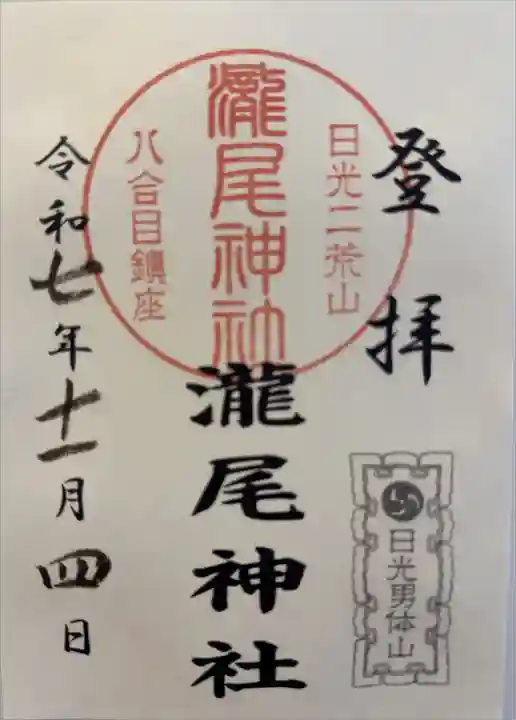 登拝
日光男体山
日光二荒山
瀧尾神社
八合目鎮座
瀧尾神社
令和七年十一月四日